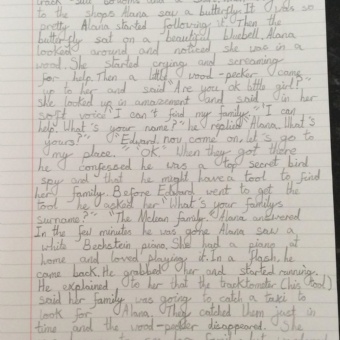 to the shops Alana saw a butterfly. It was so
pretty Alana started following it. Then the
butterfly sat on a beautiful bluebell. Alana,
looked around and noticed she was in a
wood. She started crying and screaming
for help. Then a little wood-pecker came
up to her and said "Are you ok little girl?"
she looked up in amazement and said in her
soft voice "I can't find my family." "I can
help. What's your name?" he replied "Alana. What's
yours?" "Edward. now come on let's go to
my place." "OK" When they got there
he confessed he was a top secret bird
spy and that he might have a tool to find
her family. Before Edward went to get the
tool he asked her "What's your familys
surname?" "The McLean family." Alana answered
In the few minutes he was gone Alana saw a
white Bechstein piano. She had a piano at
home and loved playing it. In a flash, he
came back. He grabbed her and started running.
He explained to her that the tracktometer (his tool)
said her family was going to catch a taxi to
look for Alana. They catched them just in
time and the wood-pecker disappeared. She